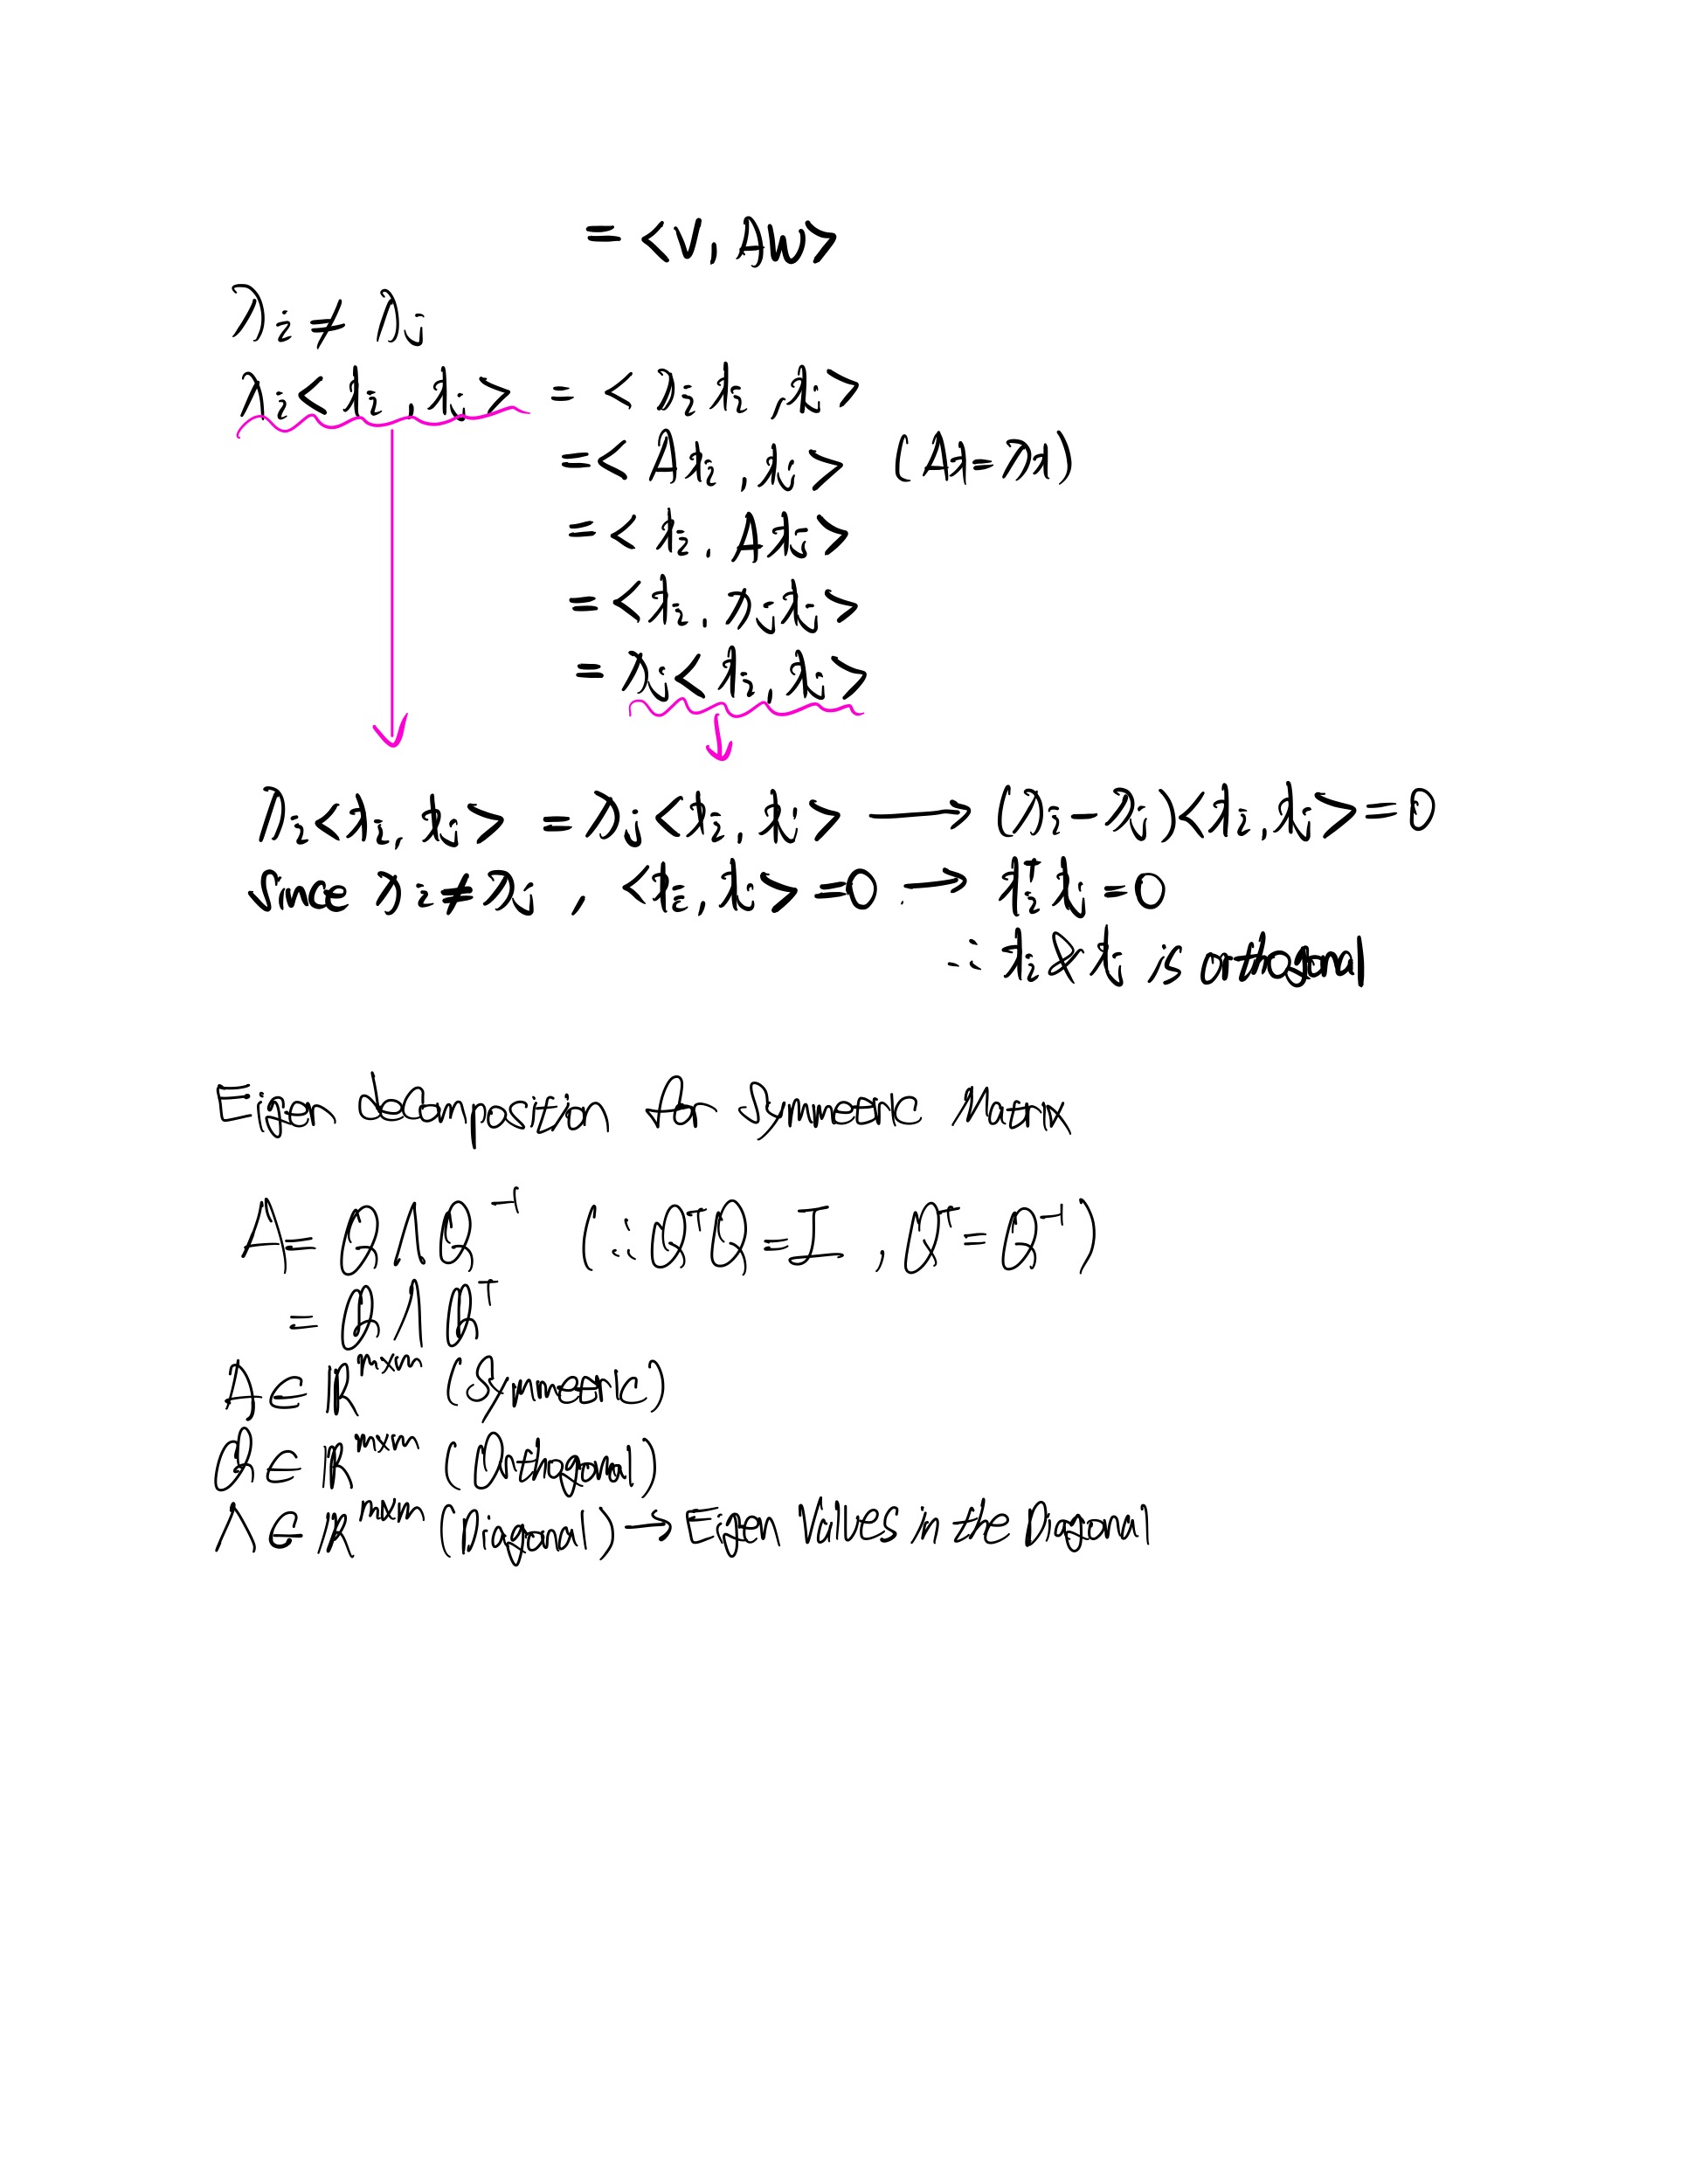 = <v, Aw>
λi ≠ λj
λi<xi, xj> = <λi xi, xj>
= <Axi, xj> (Ax=λx)
= <xi, Axj>
= <xi, λjxj>
= λj<xi, xj>
λi<xi, xj> = λj<xi, xj> → (λi-λj)<xi, xj>=0
Since λi≠λj, <xi, xj>=0 → xiᵀxj=0
∴ xi & xj is orthogonal
Eigen decomposition for Symmetric Matrix
A= QΛQ⁻¹ (∵QᵀQ=I, Qᵀ=Q⁻¹)
= QΛQᵀ
A∈ℝⁿˣⁿ (Symmetric)
Q∈ℝⁿˣⁿ (Orthogonal)
Λ∈ℝⁿˣⁿ (Diagonal) → Eigen Values in the Diagonal